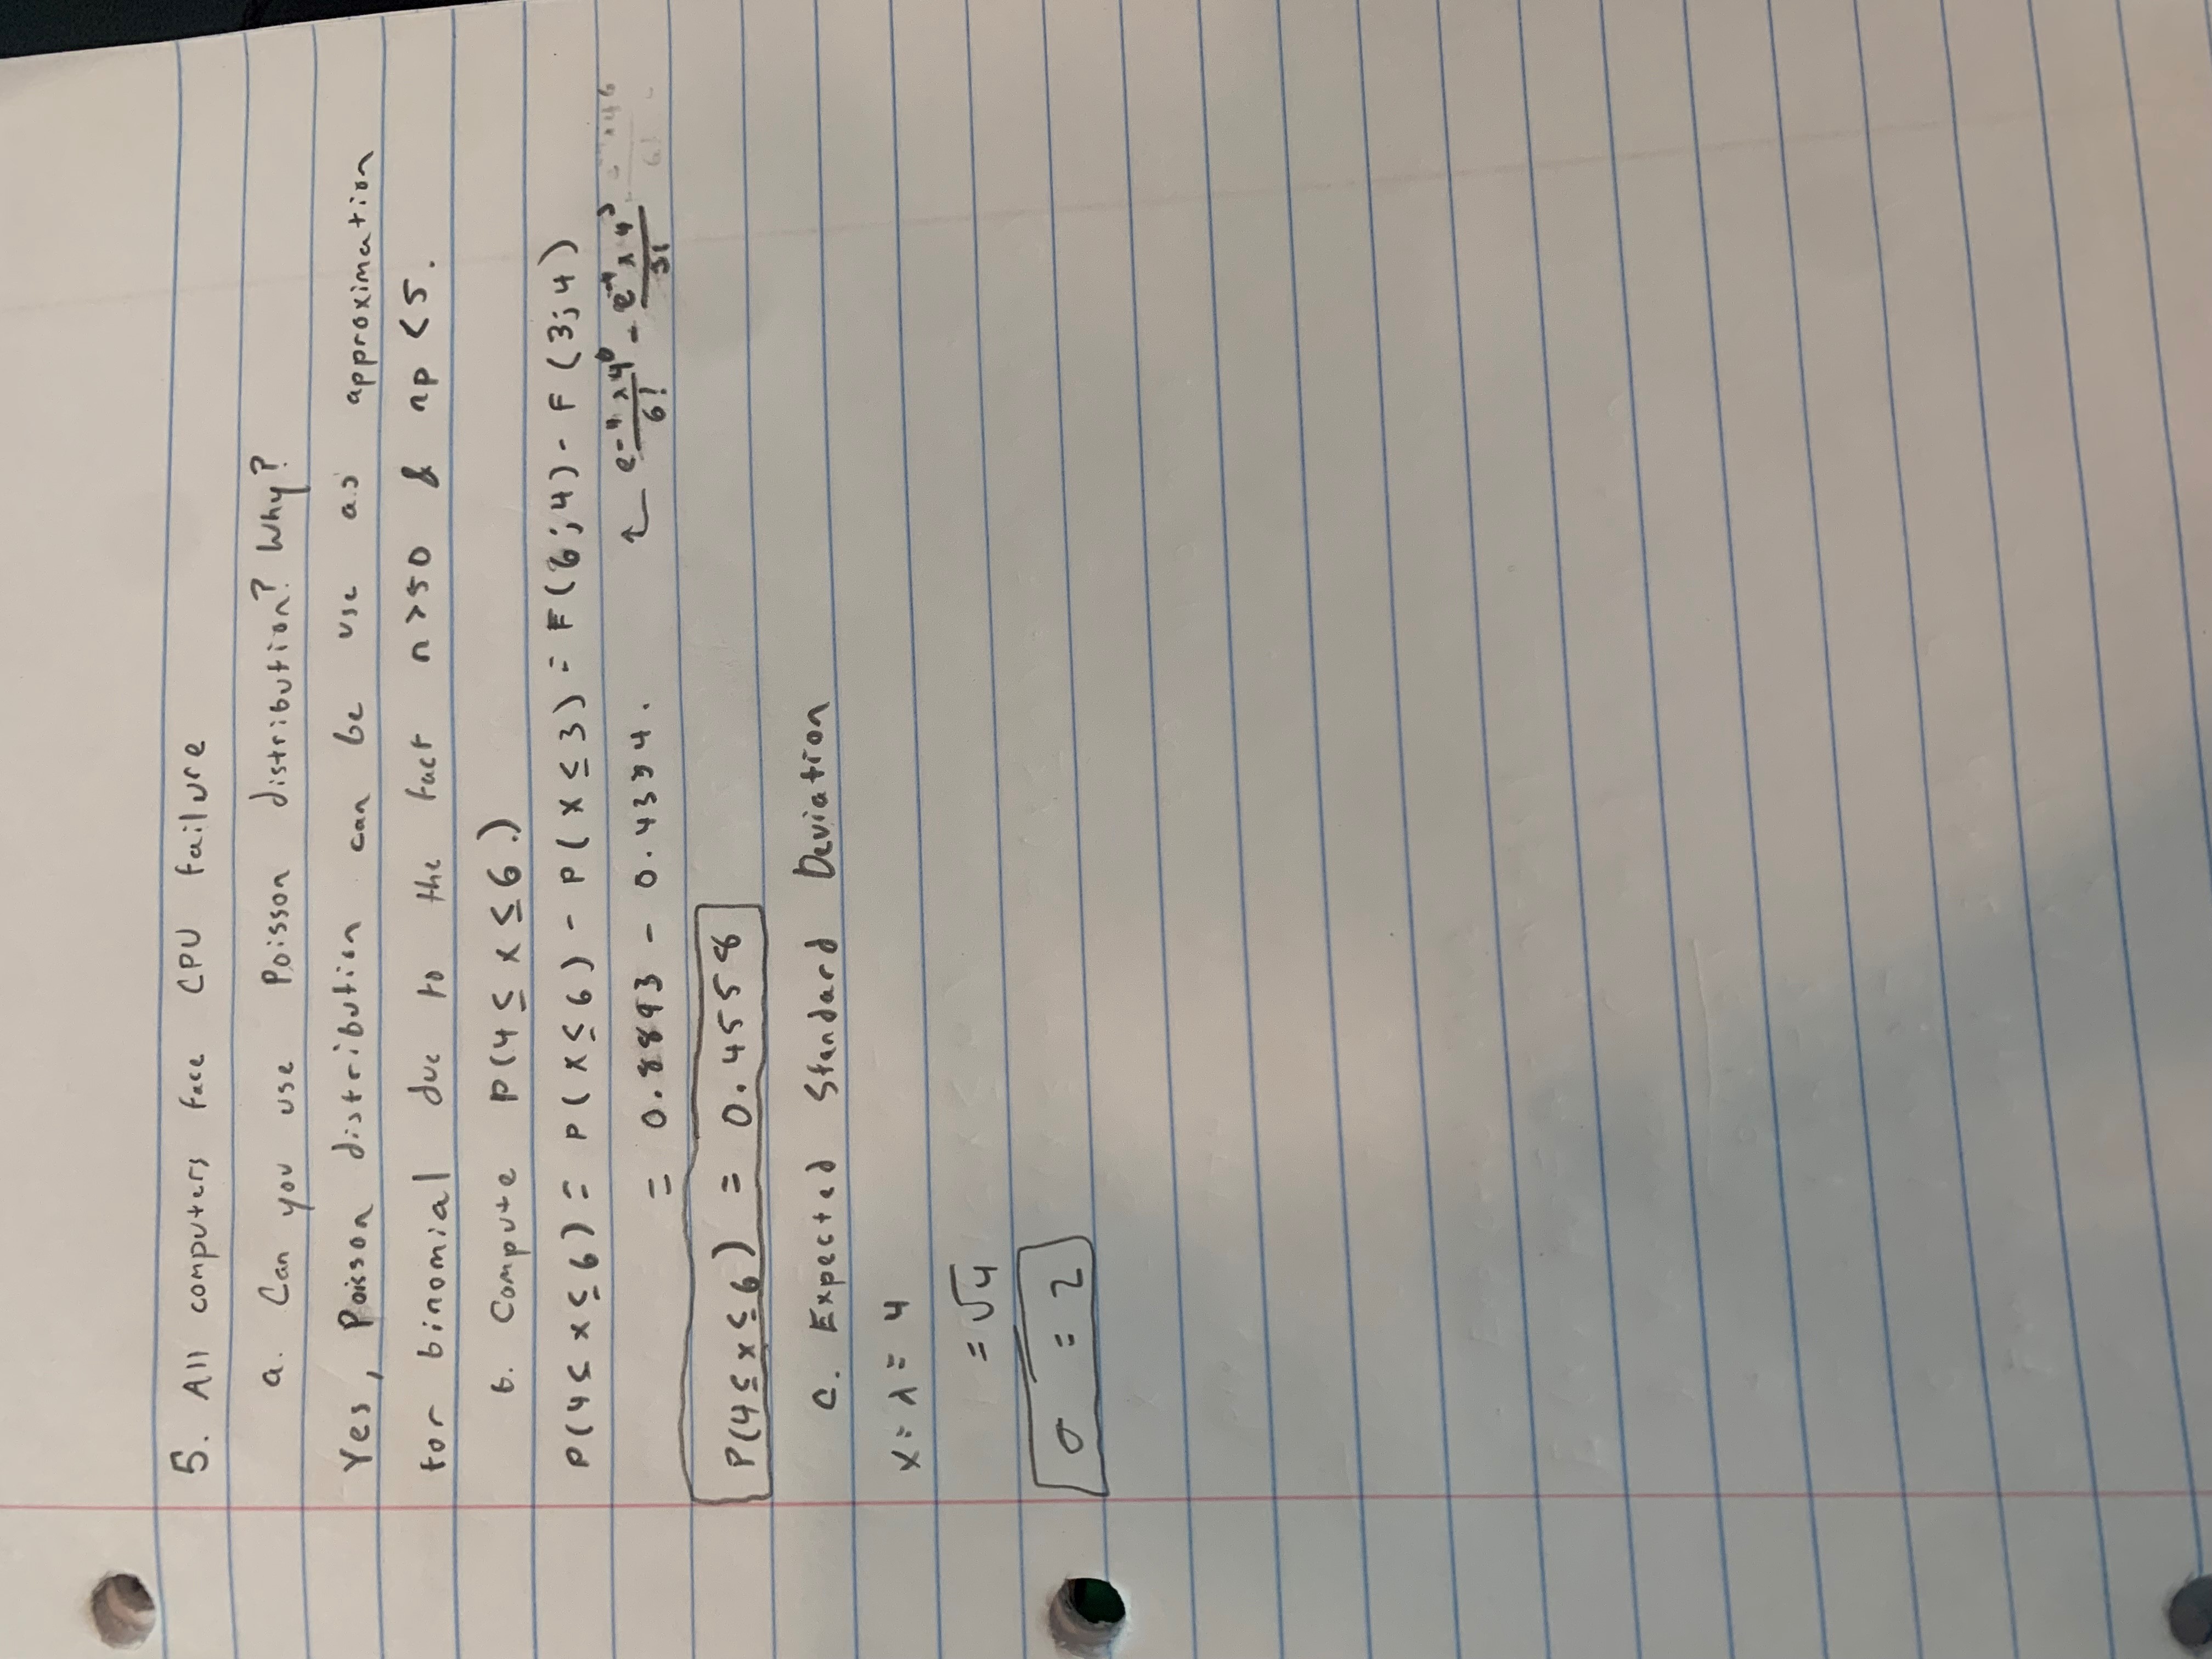 5. All computers face CPU failure
a. Can you use Poisson distribution? Why?
Yes, Poisson distribution can be use as approximation
for binomial due to the fact n>50 & np <5.
b. Compute P(4 ≤ x ≤ 6.)
P(4 ≤ x ≤ 6) = P(x ≤ 6) - P(x ≤ 3) = F(6;4) - F(3;4)
= 0.8893 - 0.4334. ↖ e^-4 x 4^6 / 6! - e^-4 x 4^3 / 3!
P(4 ≤ x ≤ 6) = 0.4558
c. Expected Standard Deviation
x = λ = 4
= √4
σ = 2